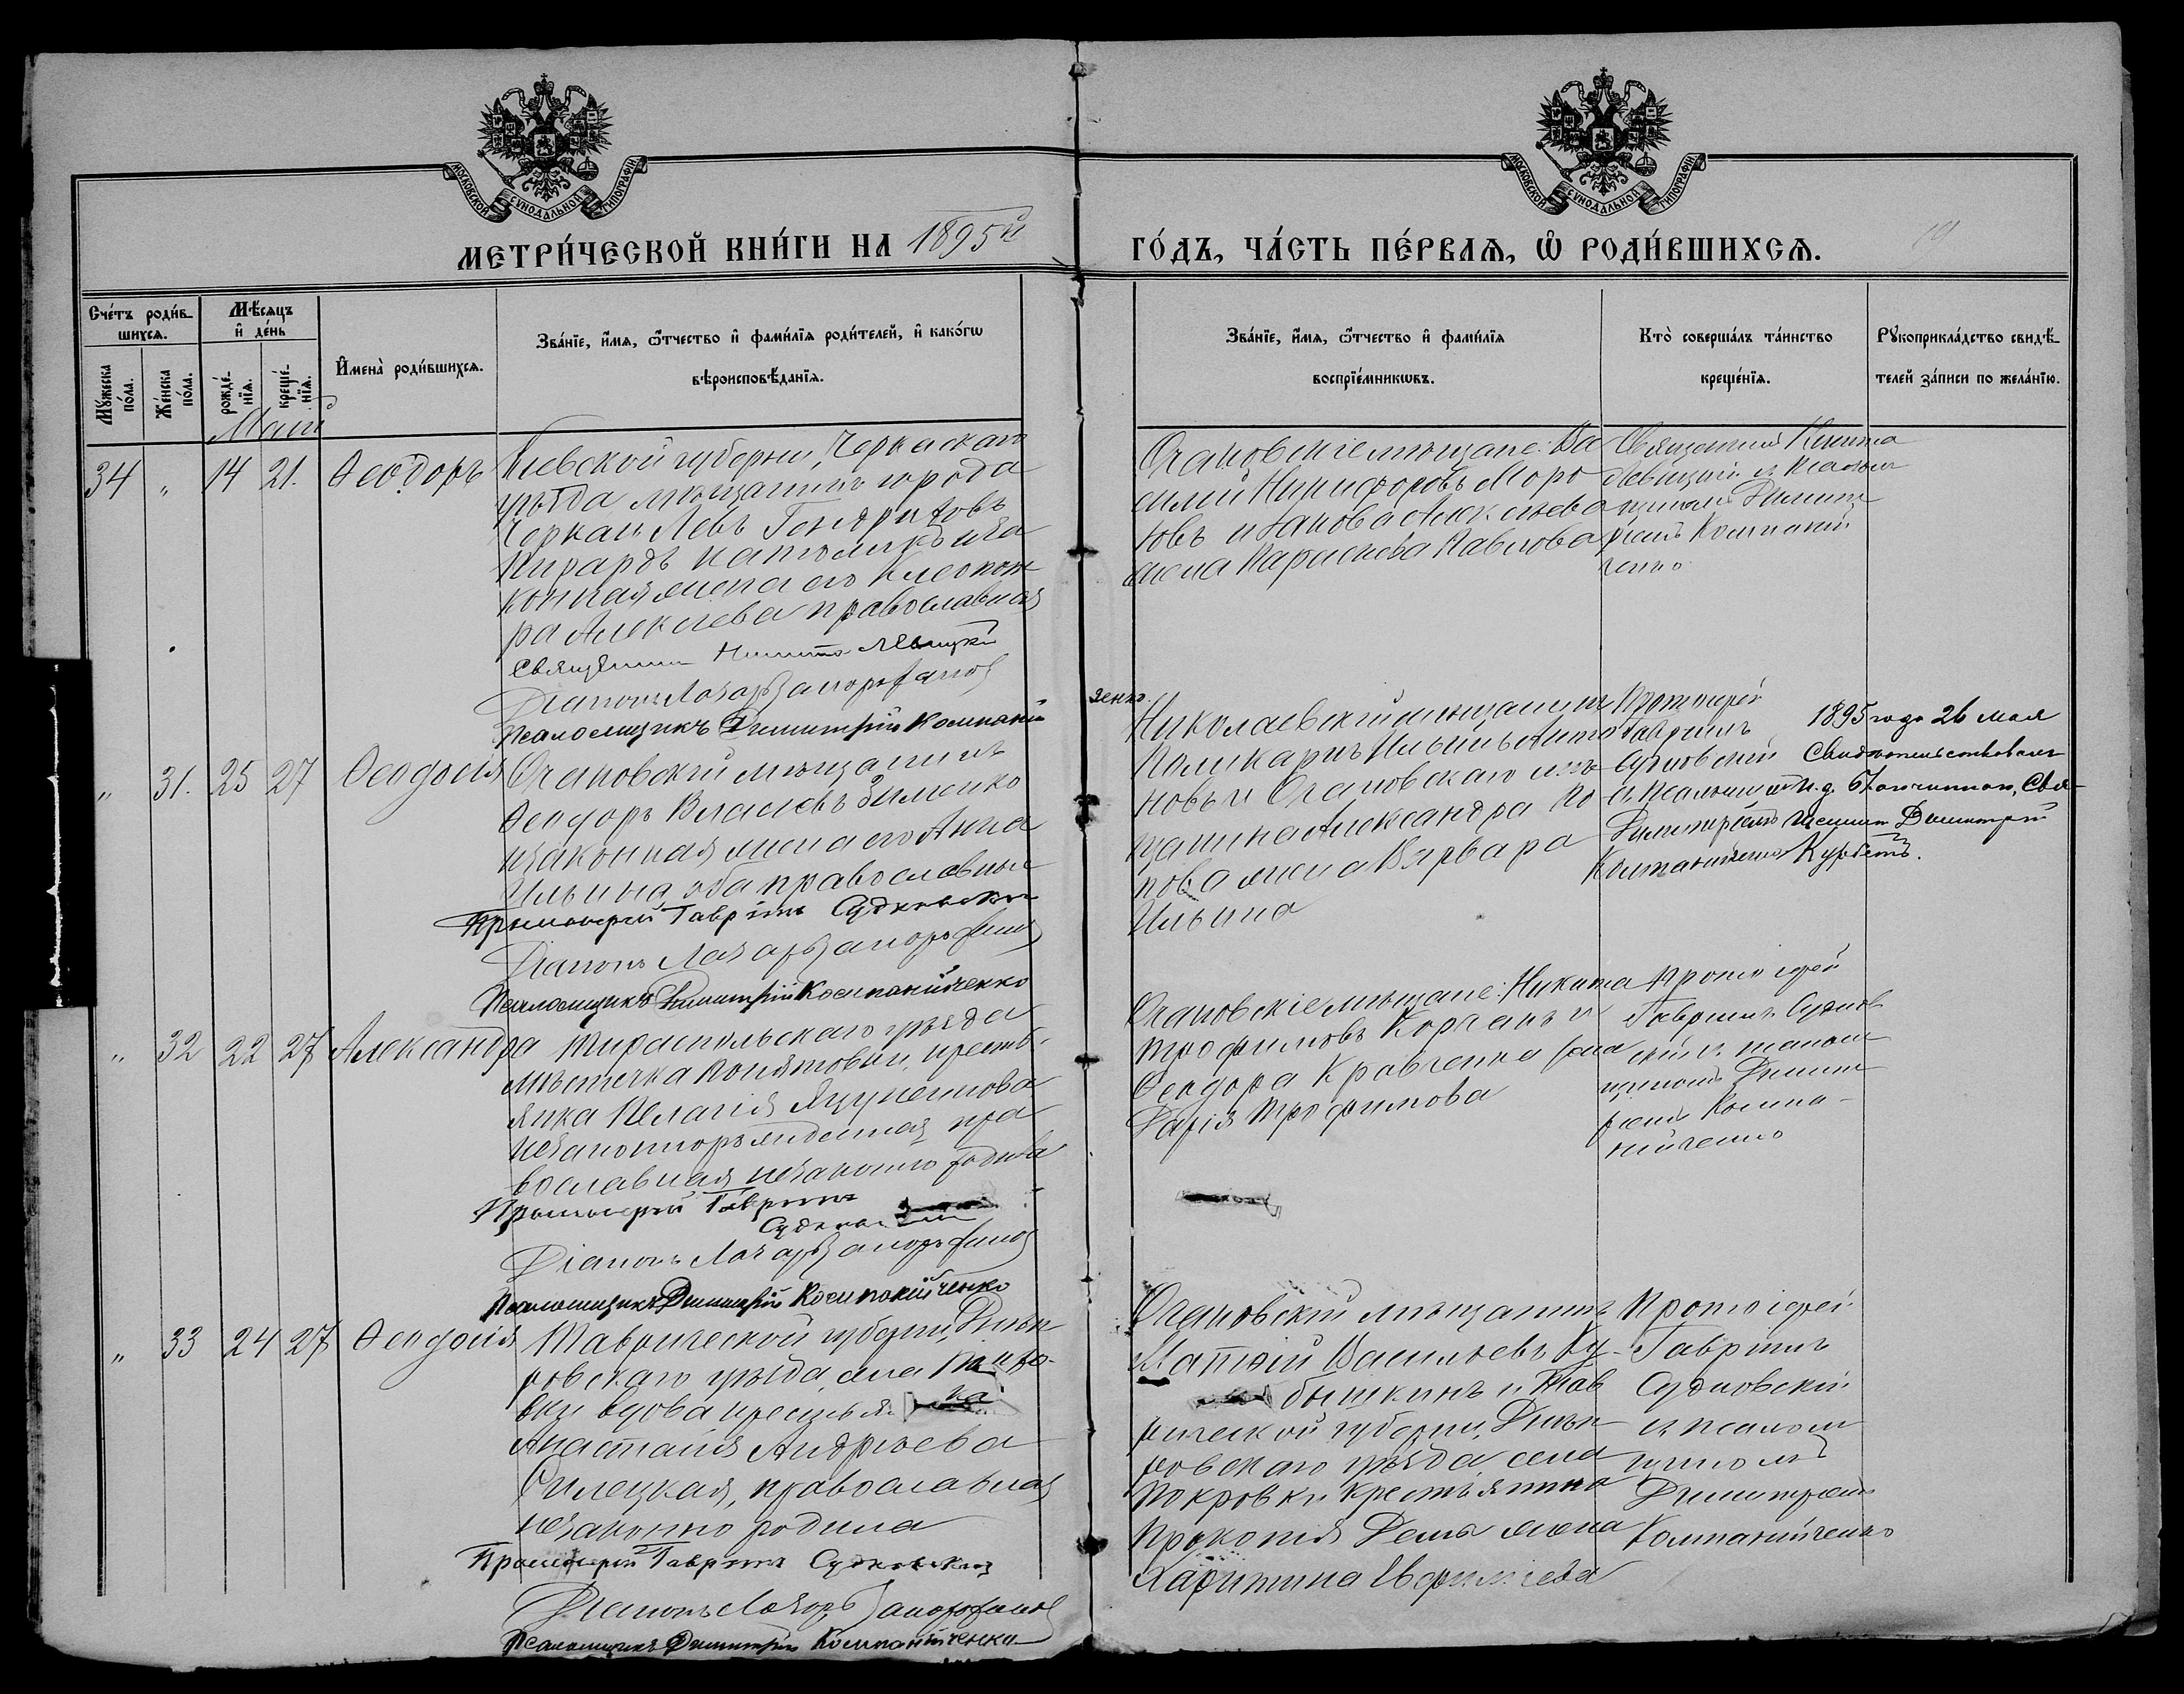 МОСКОВСКОЙ СѴНОДАЛЬНОЙ ТИПОГРАФІИ
МОСКОВСКОЙ СѴНОДАЛЬНОЙ ТИПОГРАФІИ
МЕТРИ́ЧЕСКОЙ КНИ́ГИ НА 1895й
ГО́ДЪ, ЧА́СТЬ ПЕ́РВАѦ, Ѿ РОДИ́ВШИХСѦ.
Сче́тъ роди́в-
шихсѧ.
Мꙋ́жеска по́ла.
Же́нска по́ла.
Мѣ́сѧцъ
и҆ де́нь
рожде́-нїѧ.
креще́-нїѧ.
И҆мена̀ роди́вшихсѧ.
Зва́нїе, и҆́мѧ, ѻ҆́тчество и҆ фами́лїѧ роди́телей, и҆ како́гѡ
вѣроисповѣ́данїѧ.
Зва́нїе, и҆́мѧ, ѻ҆́тчество и҆ фами́лїѧ
воспрїе́мникѡвъ.
Кто̀ соверша́лъ та́инство
креще́нїѧ.
Рꙋкоприкла́дство свидѣ́-
телей за́писи по жела́нїю.
Май
34 " 14 21. Ѳеодоръ
Кіевской губерніи, Черкаскаго
уѣзда мѣщанинъ города
Черкасъ Левъ
католикъ и за
конная жена его Клеопат
ра Алексѣева православная
Священникъ Никита Левицкій
Діаконъ Лазарь Запорожанов
Псаломщикъ Димитрій Компаній
зенко.
Очаковскіе мѣщане: Ва
силій Никифоровъ Моро
зовъ и Алексѣева
жена Параскева Павлова
Священникъ Никита
Левицкій съ псалом
щикомъ Димит
ріемъ Компаній
ченко
" 31. 25 27 Ѳеодосія
Очаковскій мѣщанинъ
Ѳеодоръ Власіевъ Зименко
и законная жена его Анна
Ильина, оба православные
Протоіерей Гавріилъ Судковскій
Діаконъ Лазарь Запорожанов
Псаломщикъ Димитрій Компанійченко
Николаевскій мѣщанинъ
Поликарпъ Ильинъ Анто
новъ и Очаковскаго мѣ
щанина Александра По
пова жена Варвара
Ильина
Протоіерей
Гавріилъ
Судковскій
съ псаломщик.
Димитріемъ
Компанійченко
1895 года 26 мая
Свидѣтельствовалъ
и. д. Благочиннаго, Свя-
щенникъ Димитрій
Курбетъ.
" 32 22 27 Александра
Тираспольскаго уѣзда
мѣстечка Понятовки, кресть-
янка Пелагія
незаконнорожденная, пра
вославная незаконно родила
Протоіерей Гавріилъ
Судковскій
Діаконъ Лазарь Запорожанов
Псаломщикъ Димитрій Компанійченко
Очаковскіе мѣщане: Никита
Трофимовъ Корчакъ и
Ѳеодора Кравченка жена
Дарія Трофимова
Протоіерей
Гавріилъ Судков
скій съ псалом
щикомъ Димит
ріемъ Компа-
нійченко
" 33 24 27 Ѳеодосія
Таврической губерніи, Днѣп
ровскаго уѣзда, села
вки вдова крестьянка
Анастасія Андреева
Силецкая, православная
незаконно родила
Протоіерей Гавріилъ Судковскій
Діаконъ Лазарь Запорожанов
Псаломщикъ Димитрій Компанійченко
Очаковскій мѣщанинъ
Матѳій Васильевъ Ку-
бышкинъ и Тав
рической губерніи, Днѣп
ровскаго уѣзда села
Покровки крестьянина
Прокопія жена
Харитина
Протоіерей
Гавріилъ
Судковскій
съ псалом
щикомъ
Димитріемъ
Компанійченко